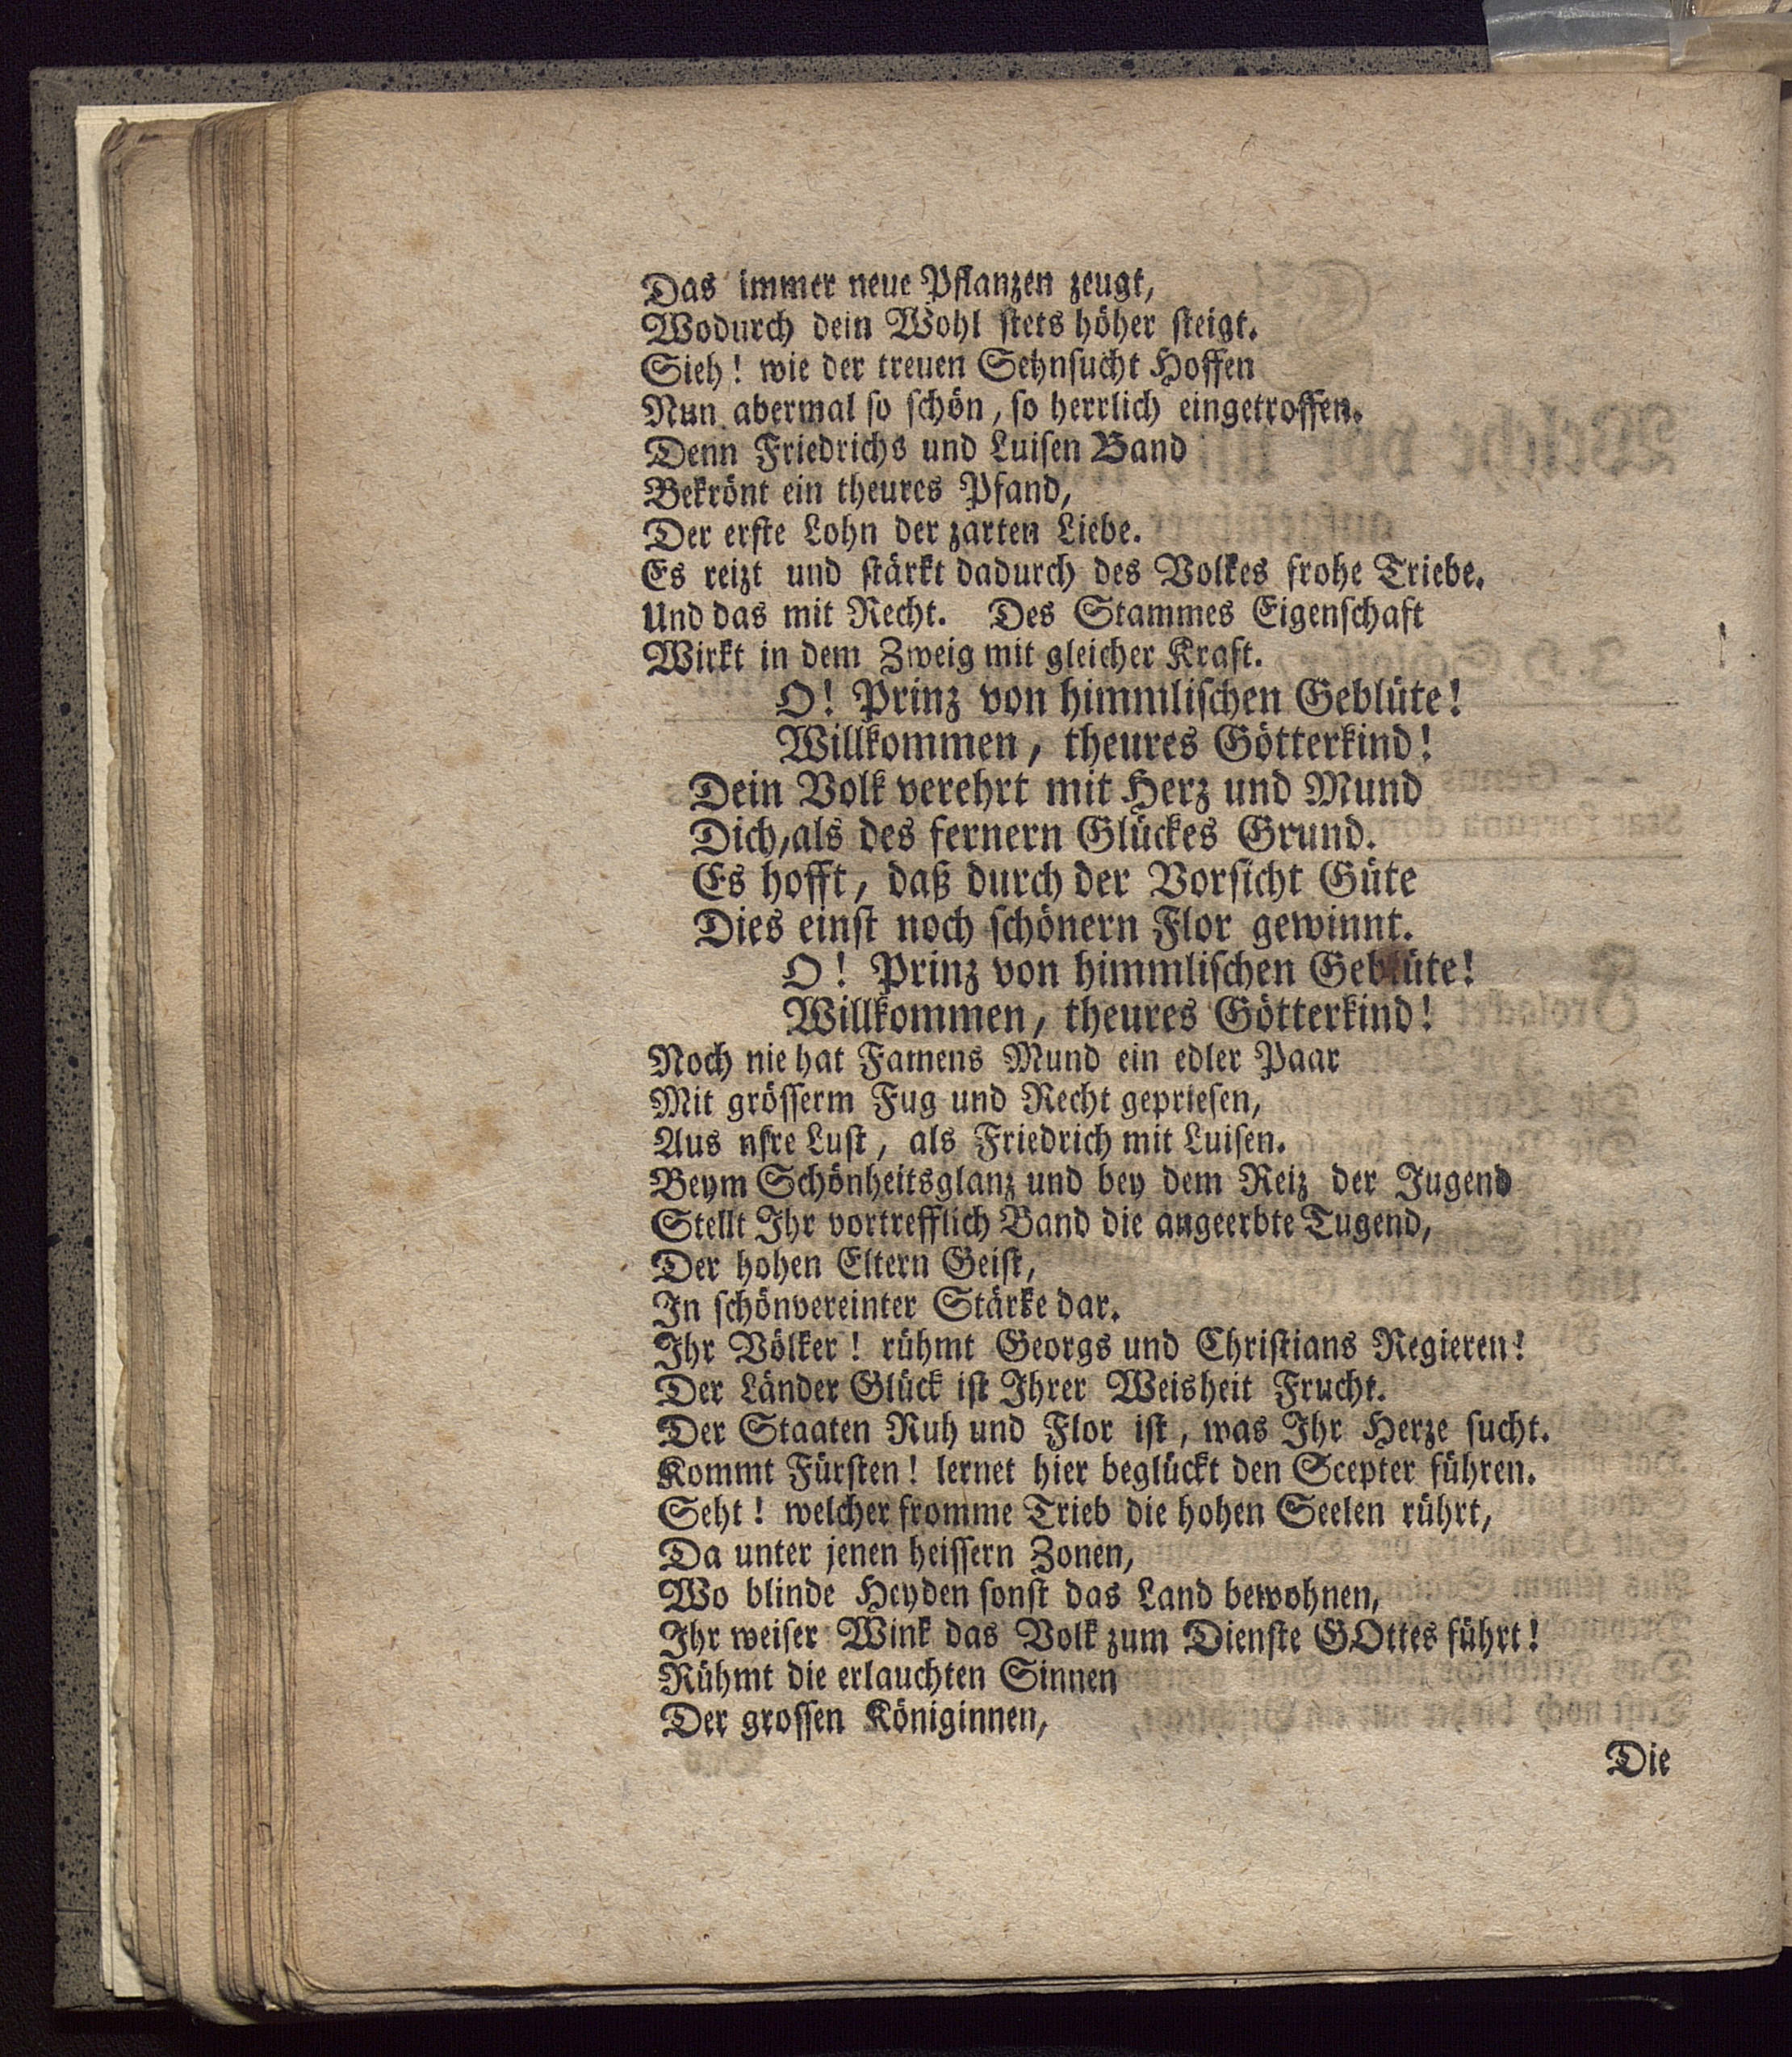 Das immer neue Pflanzen zeugt,
Wodurch dein Wohl stets höher steigt.
Sieh! wie der treuen Sehnsucht Hoffen
Nun abermal so schön, so herrlich eingetroffen.
Denn Friedrichs und Luisen Band
Bekrönt ein theures Pfand,
Der erste Lohn der zarten Liebe.
Es reizt und stärkt dadurch des Volkes frohe Triebe.
Und das mit Recht. Des Stammes Eigenschaft
Wirkt in dem Zweig mit gleicher Kraft.
O! Prinz von himmlischen Geblüte!
Willkommen, theures Götterkind!
Dein Volk verehrt mit Herz und Mund
Dich, als des fernern Glückes Grund.
Es hofft, daß durch der Vorsicht Güte
Dies einst noch schönern Flor gewinnt.
O! Prinz von himmlischen Geblüte!
Willkommen, theures Götterkind!
Noch nie hat Famens Mund ein edler Paar
Mit grösserm Fug und Recht gepriesen,
Aus nsre Lust, als Friedrich mit Luisen.
Beym Schönheitsglanz und bey dem Reiz der Jugend
Stellt Ihr vortrefflich Band die angeerbte Tugend,
Der hohen Eltern Geist,
In schönvereinter Stärke dar.
Ihr Völker! rühmt Georgs und Christians Regieren!
Der Länder Glück ist Ihrer Weisheit Frucht.
Der Staaten Ruh und Flor ist, was Ihr Herze sucht.
Kommt Fürsten! lernet hier beglückt den Scepter führen.
Seht! welcher fromme Trieb die hohen Seelen rührt,
Da unter jenen heissern Zonen,
Wo blinde Heyden sonst das Land bewohnen,
Ihr weiser Wink das Volk zum Dienste GOttes führt!
Rühmt die erlauchten Sinnen
Der grossen Königinnen,
Die